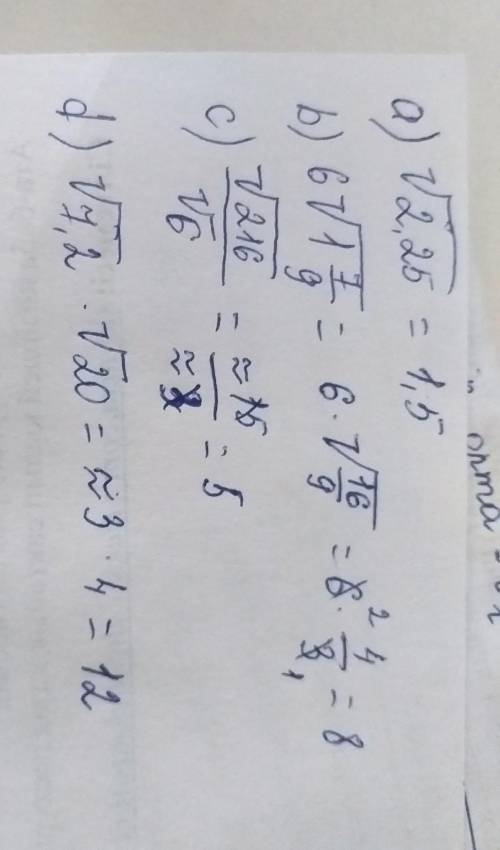 a) √2,25 = 1,5
b) 6√1 7/9 = 6·√16/9 = 6² · 4/3₁ = 8
c) √216/√6 = ≈15/≈3 = 5
d) √7,2 · √20 = ≈3 · 4 = 12
орта